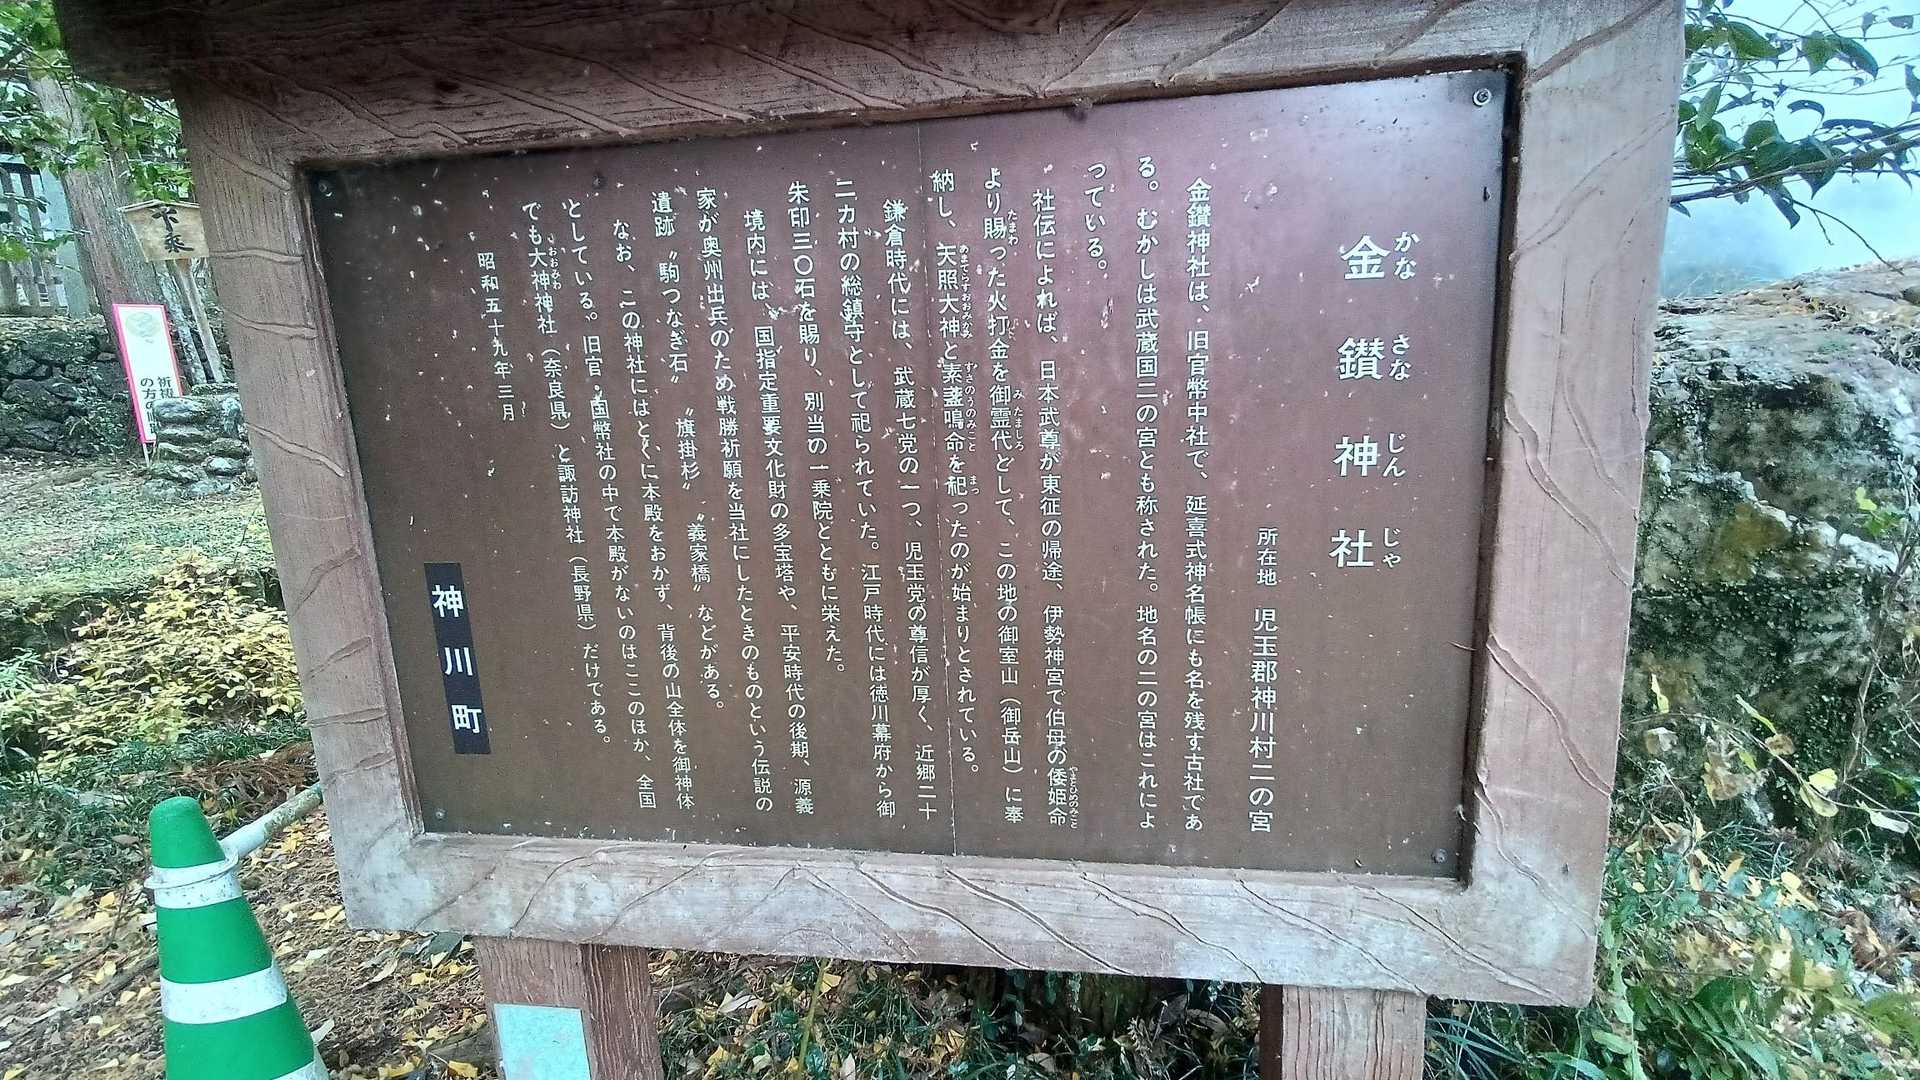 金鑚神社
かなさなじんじゃ
所在地　児玉郡神川村二の宮
金鑚神社は、旧官幣中社で、延喜式神名帳にも名を残す古社であ
る。むかしは武蔵国二の宮とも称された。地名の二の宮はこれによ
っている。
社伝によれば、日本武尊が東征の帰途、伊勢神宮で伯母の倭姫命
やまとひめのみこと
より賜った火打金を御霊代として、この地の御室山（御岳山）に奉
たまわ
みたましろ
納し、天照大神と素盞嗚命を祀ったのが始まりとされている。
あまてらすおおみかみ
すさのうのみこと
まつ
鎌倉時代には、武蔵七党の一つ、児玉党の尊信が厚く、近郷二十
二カ村の総鎮守として祀られていた。江戸時代には徳川幕府から御
朱印三〇石を賜り、別当の一乗院とともに栄えた。
境内には、国指定重要文化財の多宝塔や、平安時代の後期、源義
家が奥州出兵のため戦勝祈願を当社にしたときのものという伝説の
遺跡〝駒つなぎ石〟〝旗掛杉〟〝義家橋〟などがある。
なお、この神社にはとくに本殿をおかず、背後の山全体を御神体
としている。旧官・国幣社の中で本殿がないのはここのほか、全国
でも大神神社（奈良県）と諏訪神社（長野県）だけである。
おおみわ
昭和五十九年三月
神川町
下乗
祈祷
の方の